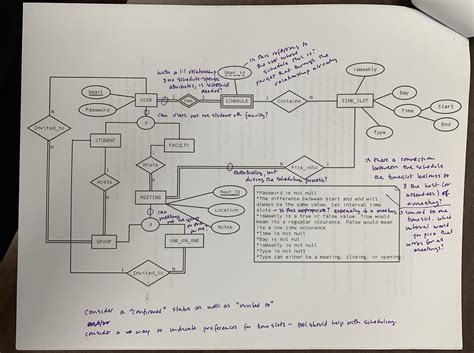 with a 1:1 relationship
& no schedule-specific
attributes, is schedule
needed?
is this referring to
the user whose
schedule this is?
you get that through the
relationship already
User_id
isWeekly
Email
Password
USER
Has
SCHEDULE
Contains
TIME_SLOT
Day
Time
Start
End
Type
can users not be student or faculty?
Invited_to
d
STUDENT
FACULTY
Hosts
Hosts
eventually, but
during the scheduling process?
Fits_into
is there a connection
between the schedule
the timeslot belongs to
& the host (or
attendees) of
a meeting?
MEETING
Meet_ID
Location
Notes
d
can
meetings
not be
ONE_ON_ONE
GROUP
Invited_to
*Password is not null
*The difference between start and end will
always be the same value. let interval time
slots - is this appropriate? especially if a meeting
*isWeekly is a true or false value. True would
mean is a regular occurence. False would mean
its a one time occurence
*Time is not null
*Day is not null
*isWeekly is not null
*Type is not null
*Type can either be a meeting, closing, or opening
is tied to one
timeslot. what
interval would
you pick that
works for all
meetings?
consider a "confirmed" status as well as "invited to"
and/or
consider a way to indicate preferences for time slots - tool should help with scheduling.